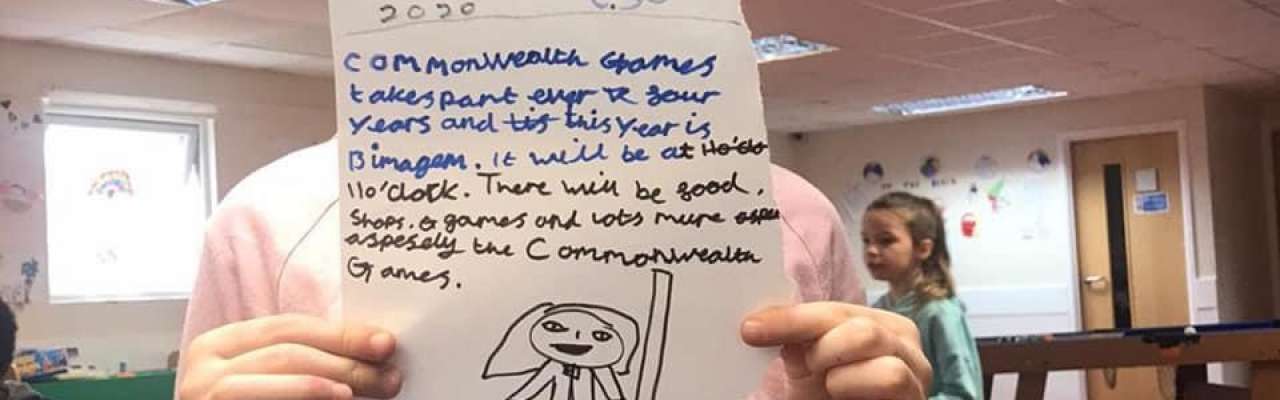 2020
Commonwealth Games
takes part ever R four
years and tis this year is
Bimagem. It will be at Ho'clo
11o'clock. There will be food,
Shops. & games and lots mure aspe
aspesely the Commonwealth
Games.